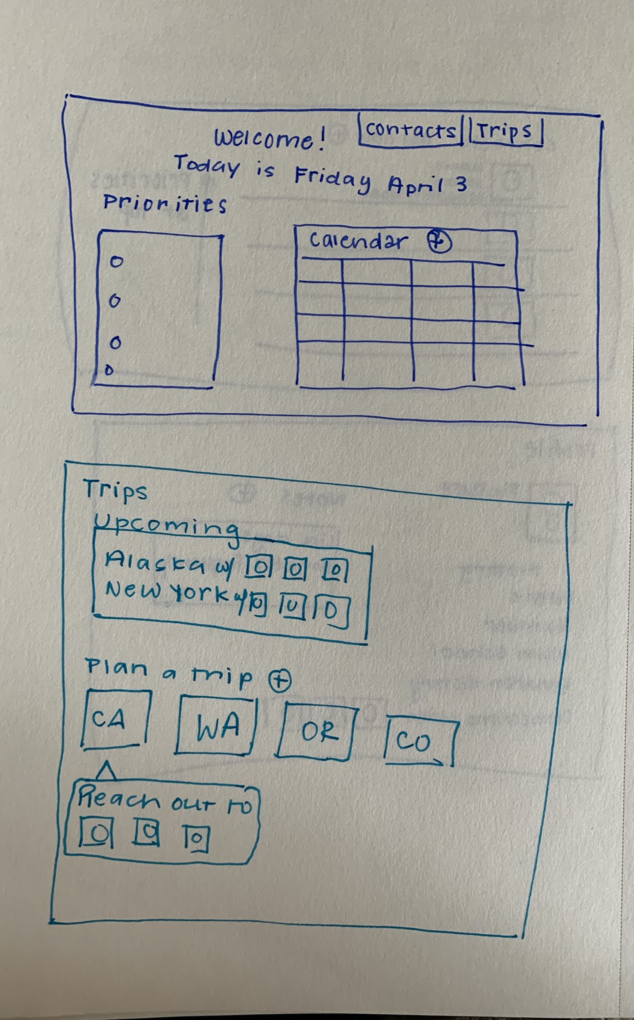 Welcome!
contacts
Trips
Today is Friday April 3
Priorities
Calendar +
Trips
Upcoming
Alaska w/
New York w/
Plan a trip +
CA
WA
OR
CO
Reach out to